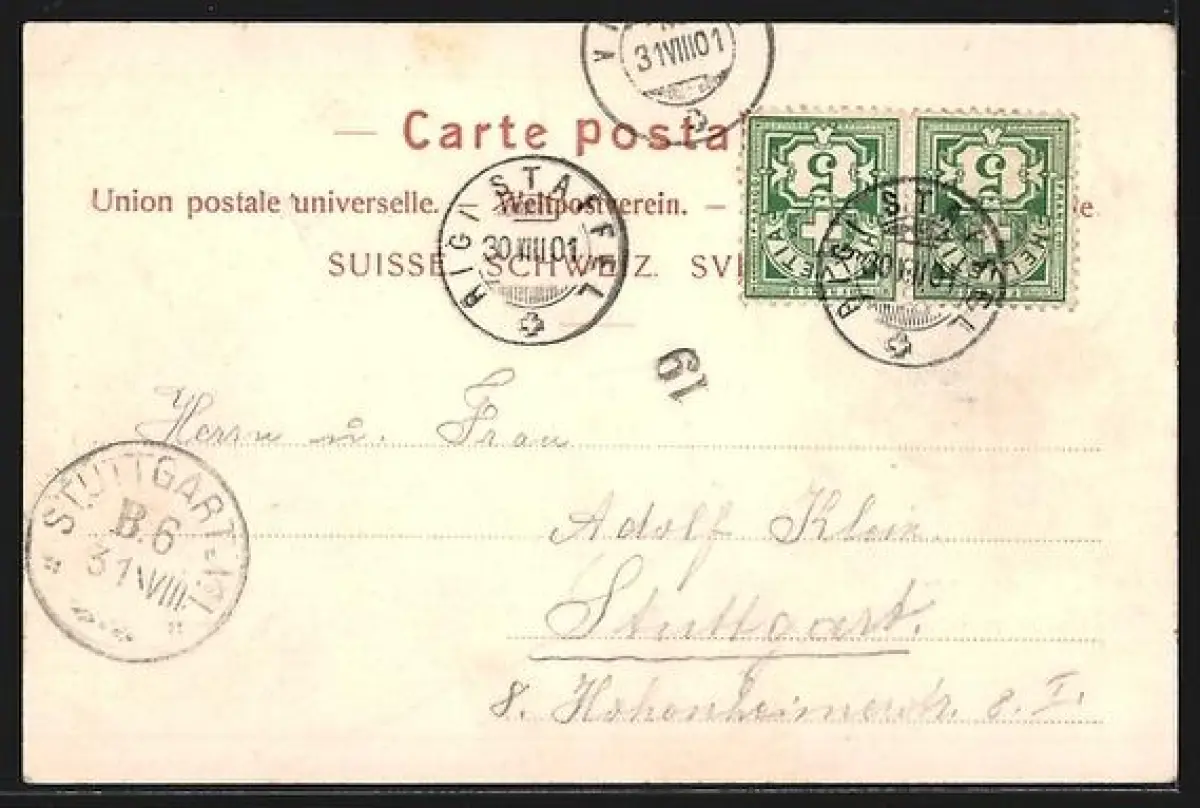 31 VIII 01
Carte posta
Union postale universelle. — Weltpostverein. —
SUISSE. SCHWEIZ. SVI
RIGI STAFFEL
30 VIII 01
5 5
HELVETIA HELVETIA
RIGI STAFFEL
19
Herrn u. Frau
STUTTGART
B.6
31 VIII.
Adolf Klein.
Stuttgart.
8. Hohenheimerstr. 8. I.